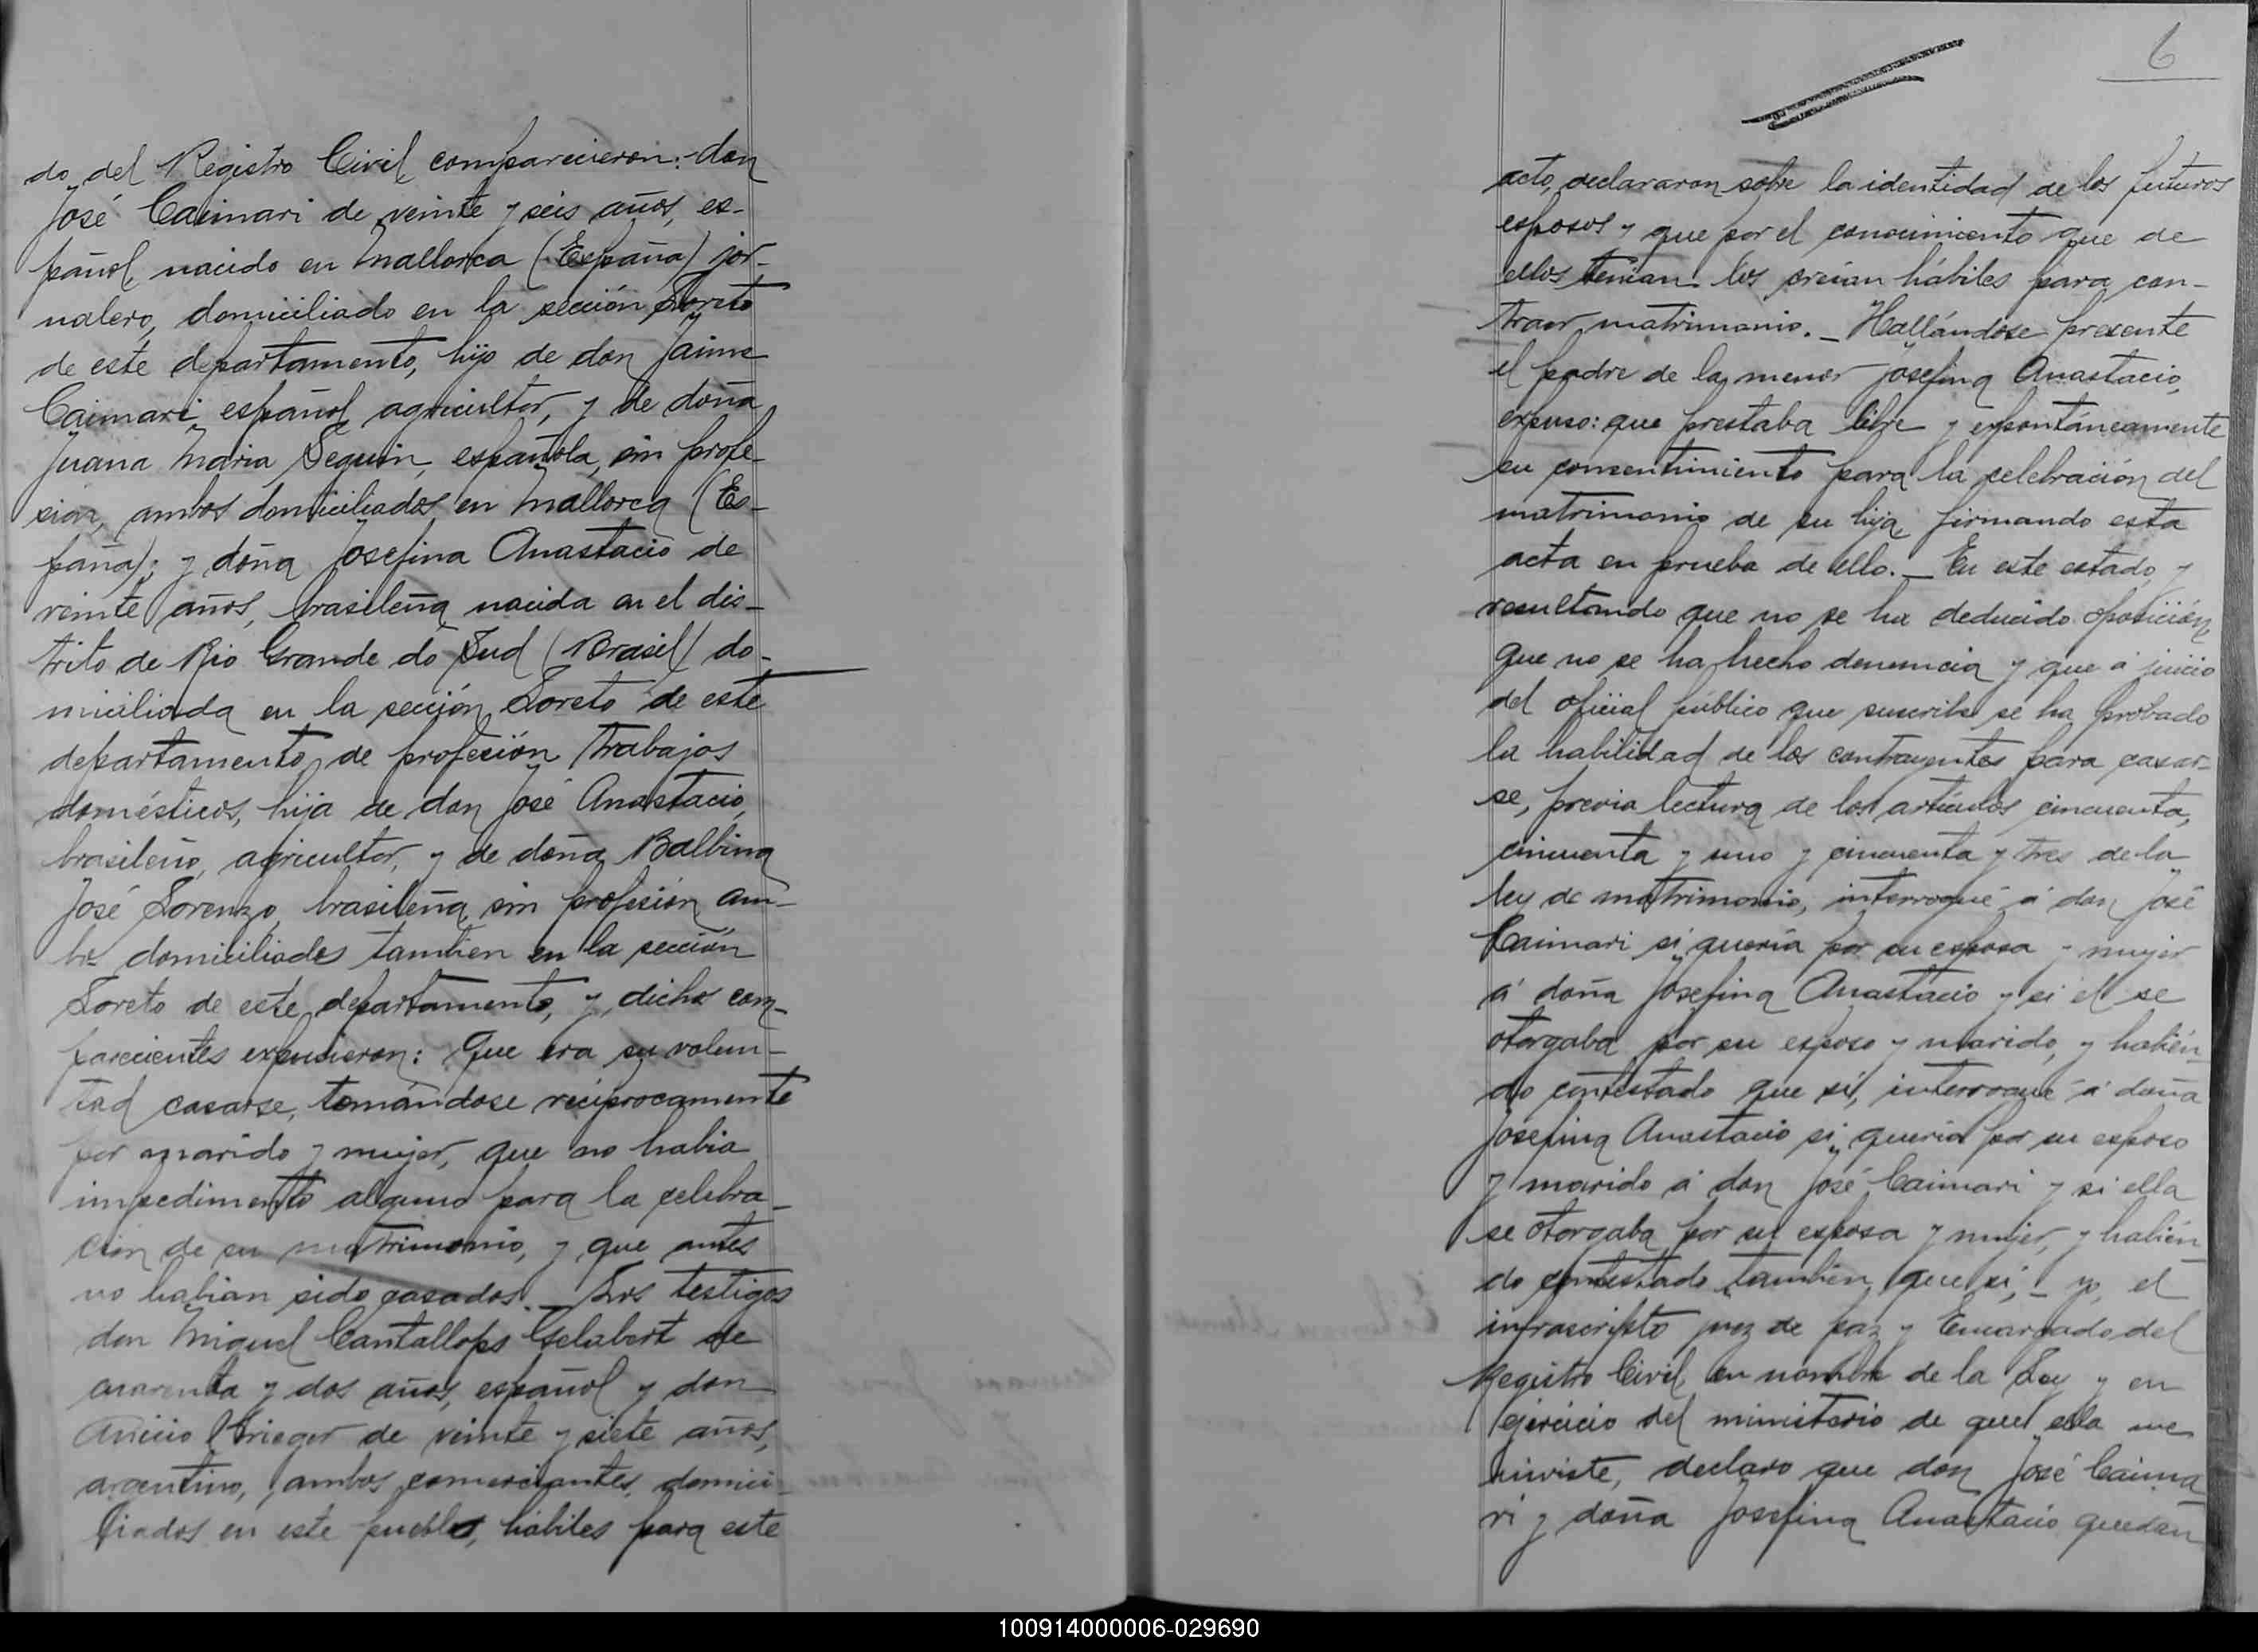 do del Registro Civil, comparecieron:-don
José Caimari de veinte y seis años, es-
pañol, nacido en Mallorca (España) jor-
nalero, domiciliado en la sección Loreto
de este departamento, hijo de don Jaime
Caimari, español, agricultor, y de doña
Juana Maria Seguin, española, sin profe-
sion, ambos domiciliados en Mallorca (Es-
paña); y doña Josefina Anastacio de
veinte años, brasileña, nacida en el dis-
trito de Rio Grande do Sud (Brasil) do-
miciliada en la sección Loreto de este
departamento, de profesión trabajos
domésticos, hija de don José Anastacio,
brasileño, agricultor, y de doña Balbina
José Lorenzo, brasileña, sin profesión, am-
bos domiciliados tambien en la sección
Loreto de este departamento, y dichos com-
parecientes expusieron: Que era su volun-
tad casarse, tomándose recíprocamente
por marido y mujer, que no habia
impedimento alguno para la celebra-
cion de su matrimonio, y que antes
no habian sido casados._ Los testigos
don Miguel Cantallops Gelabert de
cuarenta y dos años, español y don
Anicio Krieger de veinte y siete años,
argentino, ambos comerciantes, domici-
liados en este pueblo, hábiles para este
6
acto, declararon sobre la identidad de los futuros
esposos y que por el conocimiento que de
ellos tenian los creían hábiles para con-
traer matrimonio._ Hallándose presente
el padre de la menor Josefina Anastacio,
expuso: que prestaba libre y expontáneamente
su consentimiento para la celebración del
matrimonio de su hija, firmando esta
acta en prueba de ello._ En este estado, y
resultando que no se ha deducido oposición,
que no se ha hecho denuncia y que á juicio
del oficial público que suscribe se ha probado
la habilidad de los contrayentes para casar-
se, previa lectura de los artículos cincuenta,
cincuenta y uno y cincuenta y tres de la
ley de matrimonio, interrogué á don José
Caimari si queria por su esposa y mujer
á doña Josefina Anastacio y si el se
otorgaba por su esposo y marido, y habién-
do contestado que sí, interrogué á doña
Josefina Anastacio si queria por su esposo
y marido á don José Caimari y si ella
se otorgaba por su esposa y mujer, y habién
do contestado tambien que sí,- yo, el
infrascripto juez de paz y Encargado del
Registro Civil en nombre de la Ley y en
ejercicio del ministerio de que ella me
inviste, declaro que don José Caima
ri y doña Josefina Anastacio quedan
100914000006-029690